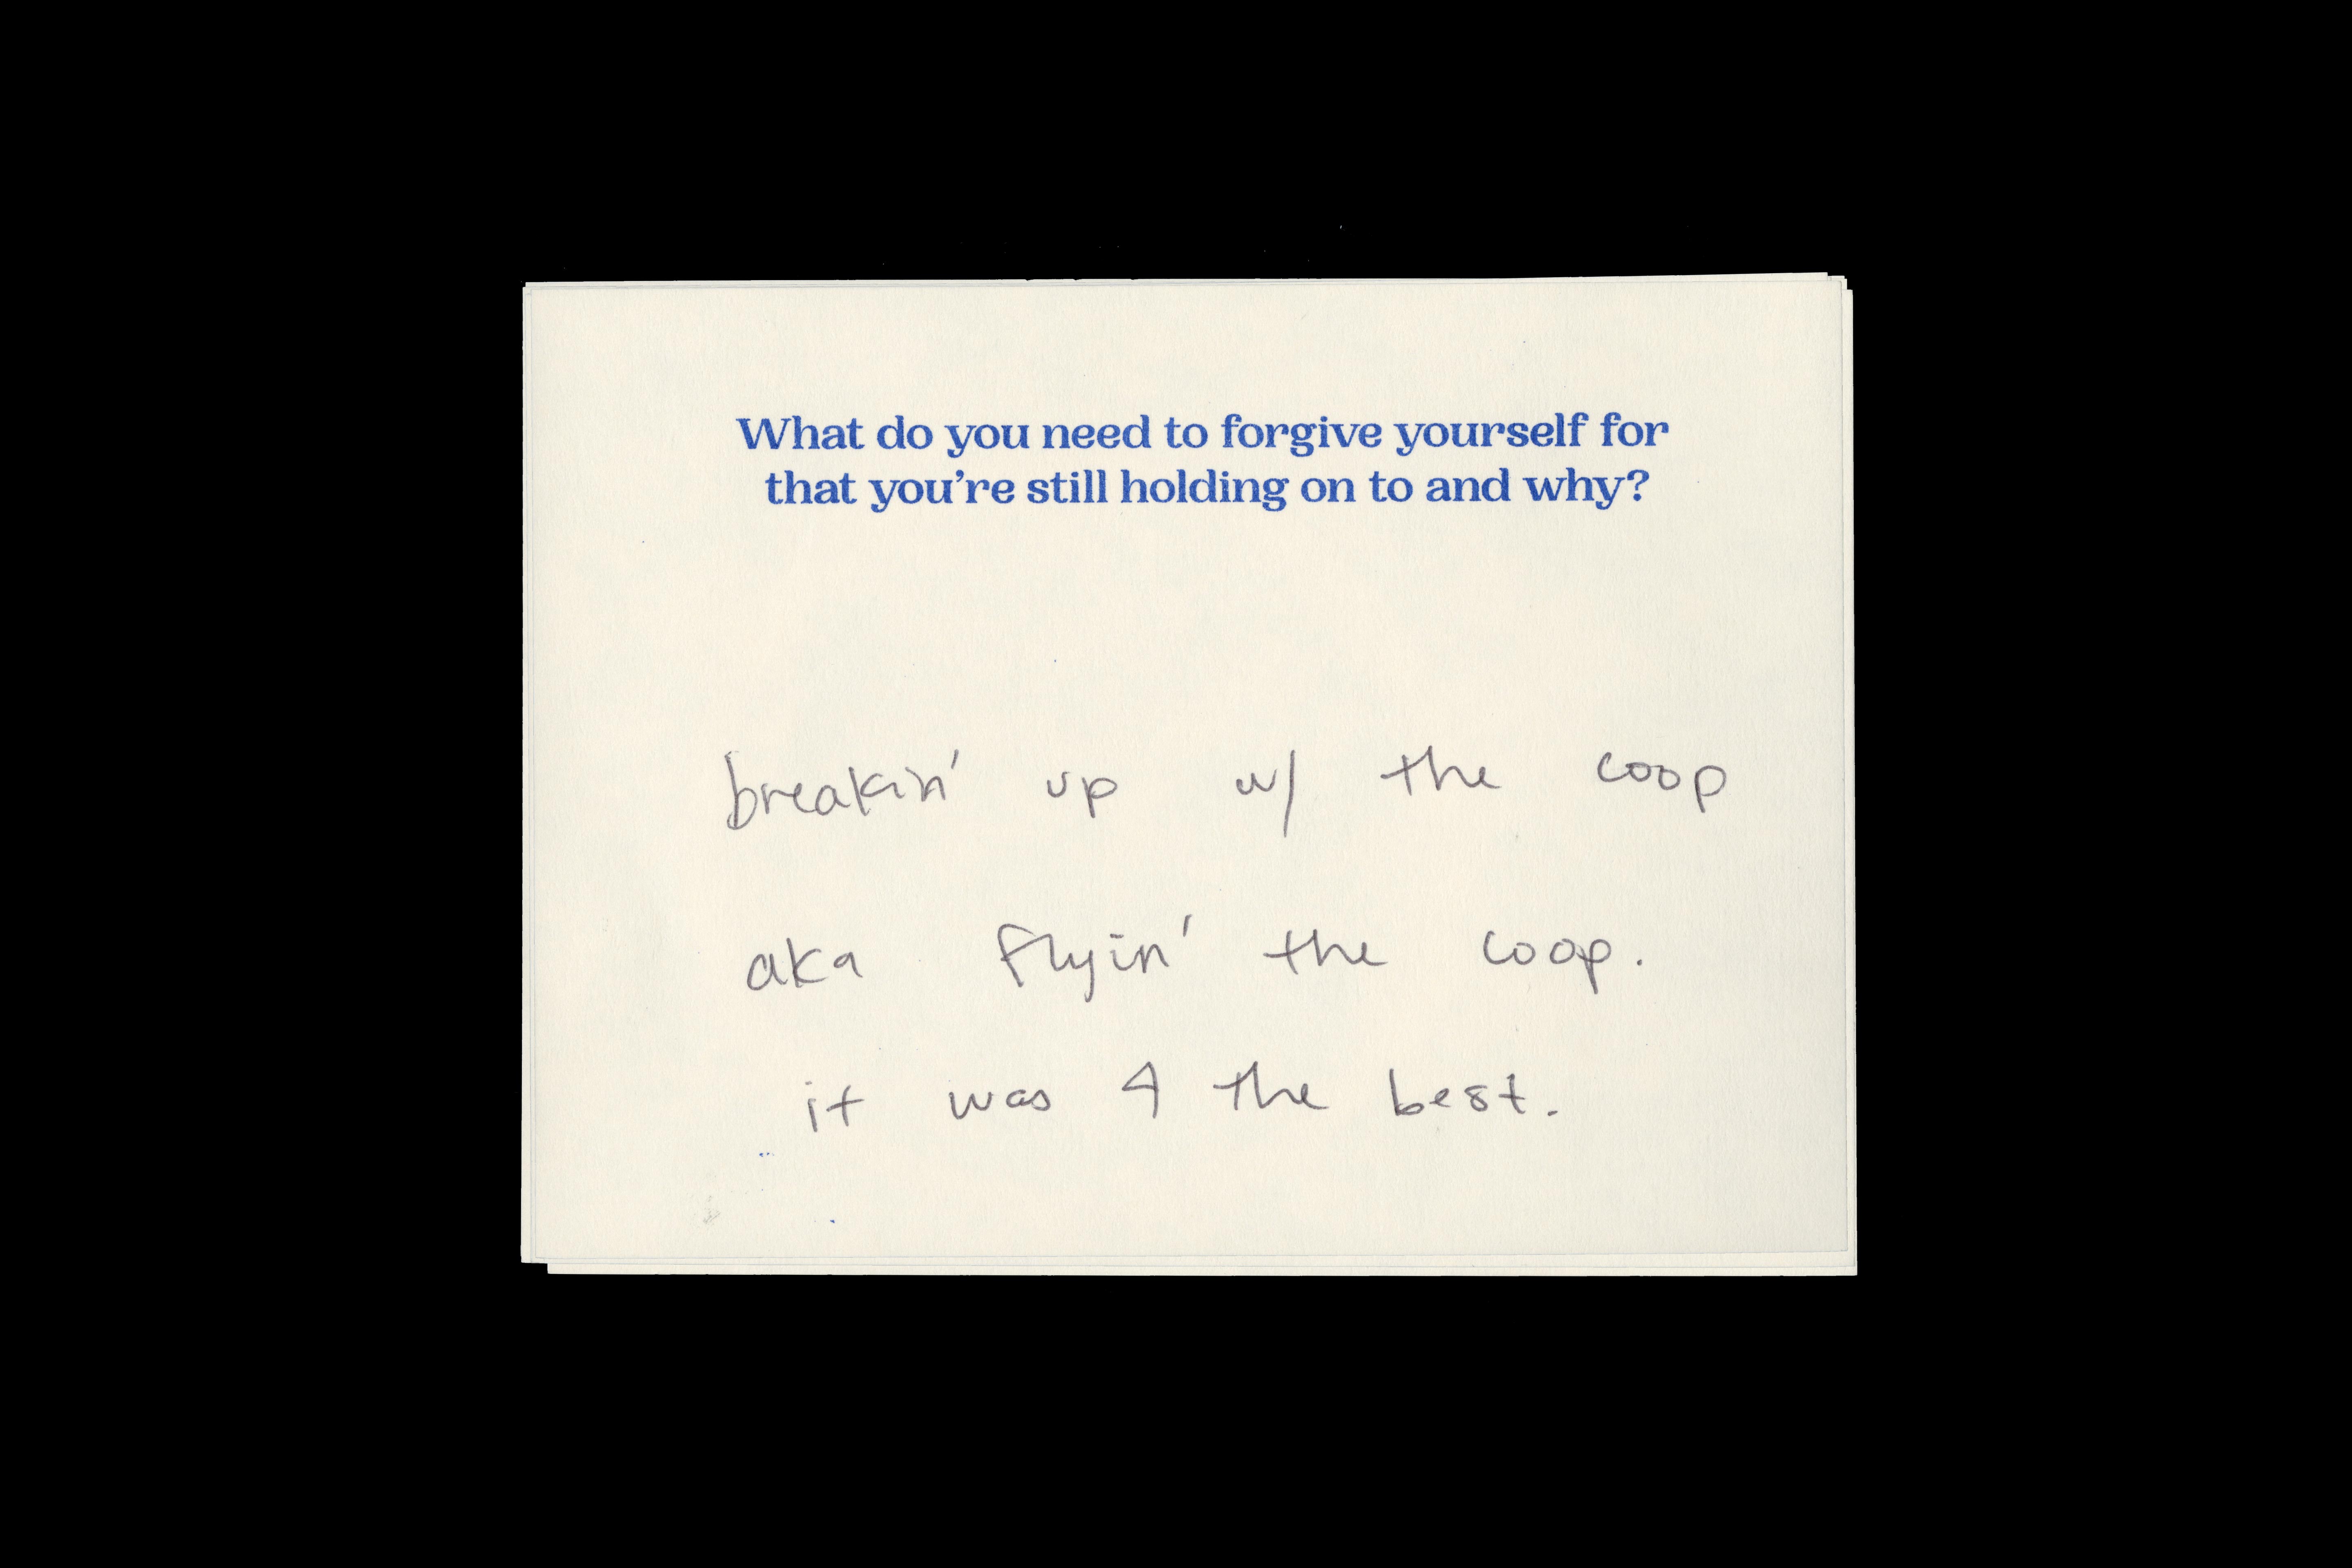 What do you need to forgive yourself for
that you're still holding on to and why?
breakin' up w/ the coop
aka flyin' the coop.
it was 4 the best.